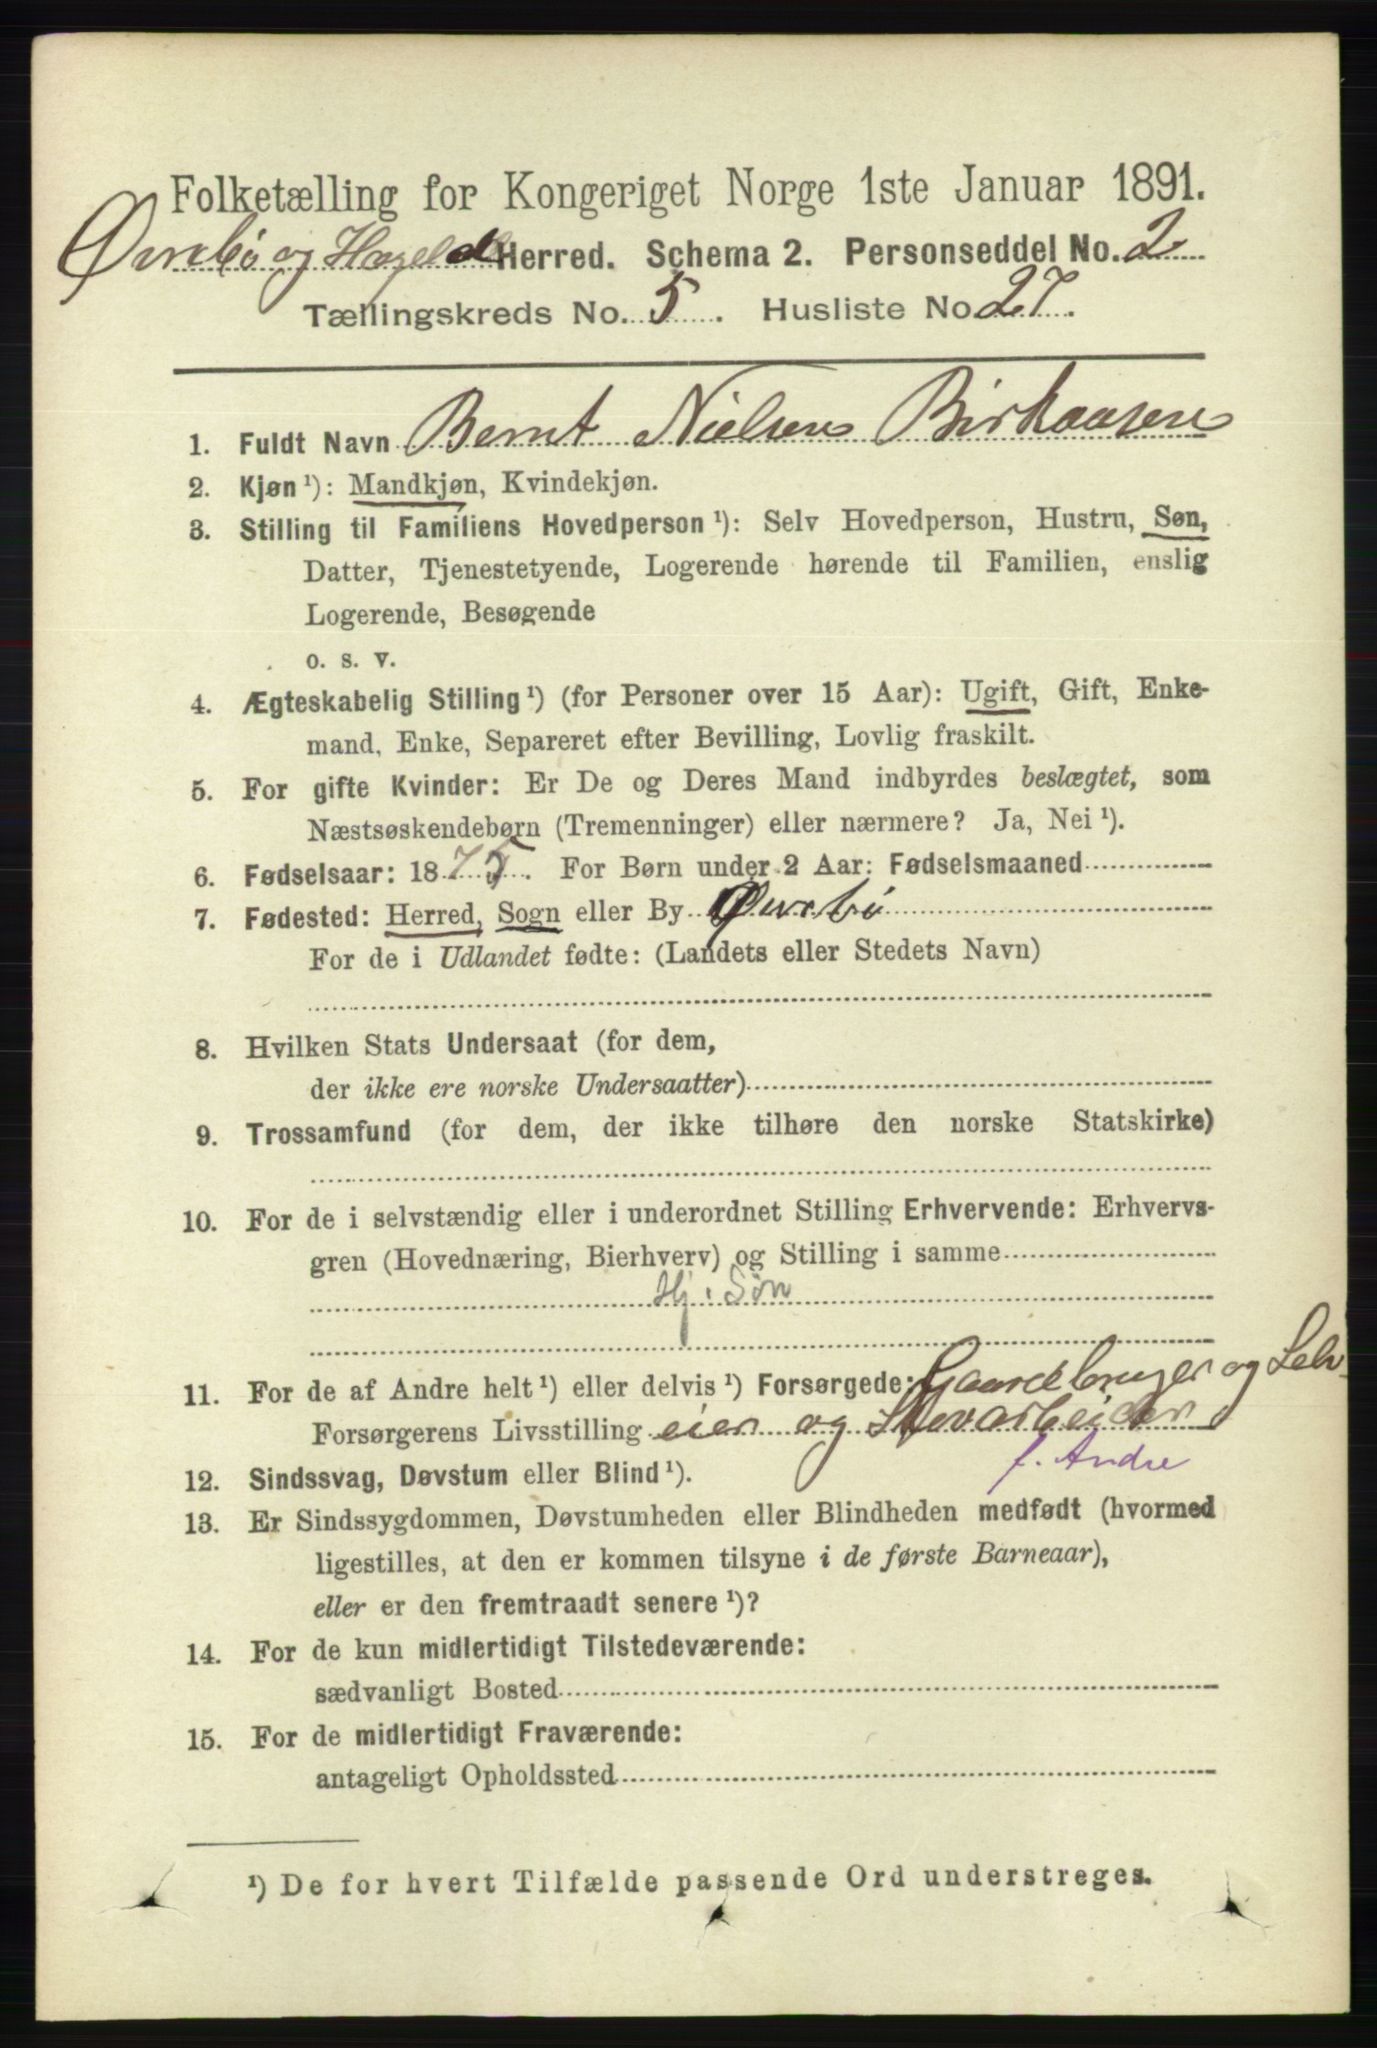 Folketælling for Kongeriget Norge 1ste Januar 1891.
Øvrebø og Hægeland Herred. Schema 2. Personseddel No. 2
Tællingskreds No. 5. Husliste No. 27.
1. Fuldt Navn Bernt Nielsen Birkaasen
2. Kjøn ¹): Mandkjøn, Kvindekjøn.
3. Stilling til Familiens Hovedperson ¹): Selv Hovedperson, Hustru, Søn,
Datter, Tjenestetyende, Logerende hørende til Familien, enslig
Logerende, Besøgende
o. s. v.
4. Ægteskabelig Stilling ¹) (for Personer over 15 Aar): Ugift, Gift, Enke-
mand, Enke, Separeret efter Bevilling, Lovlig fraskilt.
5. For gifte Kvinder: Er De og Deres Mand indbyrdes beslægtet, som
Næstsøskendebørn (Tremenninger) eller nærmere? Ja, Nei ¹).
6. Fødselsaar: 1875. For Børn under 2 Aar: Fødselsmaaned
7. Fødested: Herred, Sogn eller By Øvrebø
For de i Udlandet fødte: (Landets eller Stedets Navn)
8. Hvilken Stats Undersaat (for dem,
der ikke ere norske Undersaatter)
9. Trossamfund (for dem, der ikke tilhøre den norske Statskirke)
10. For de i selvstændig eller i underordnet Stilling Erhvervende: Erhvervs-
gren (Hovednæring, Bierhverv) og Stilling i samme
Hj. Søn
11. For de af Andre helt ¹) eller delvis ¹) Forsørgede: Gaardbruger og Selv-
Forsørgerens Livsstilling eier og Skovarbeider
f. Andre
12. Sindssvag, Døvstum eller Blind ¹).
13. Er Sindssygdommen, Døvstumheden eller Blindheden medfødt (hvormed
ligestilles, at den er kommen tilsyne i de første Barneaar),
eller er den fremtraadt senere ¹)?
14. For de kun midlertidigt Tilstedeværende:
sædvanligt Bosted
15. For de midlertidigt Fraværende:
antageligt Opholdssted
¹) De for hvert Tilfælde passende Ord understreges.